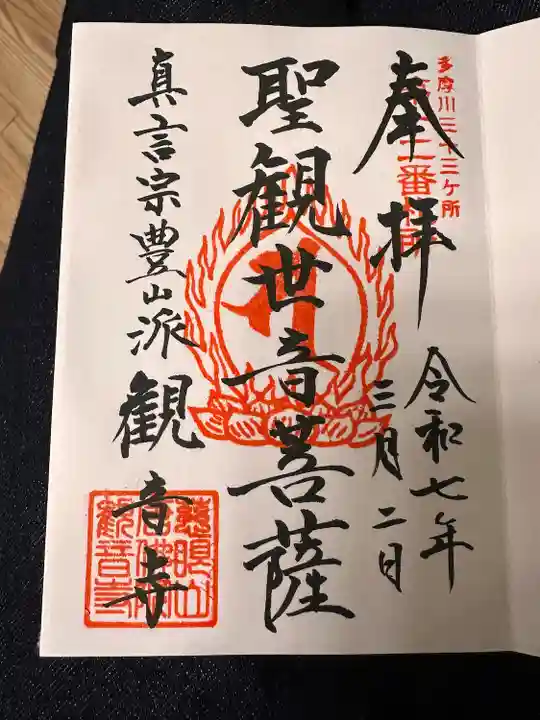 多摩川三十三ケ所
二番札所
奉拝
令和七年
三月二日
聖観世音菩薩
真言宗豊山派 観音寺
慈眼山
観音寺